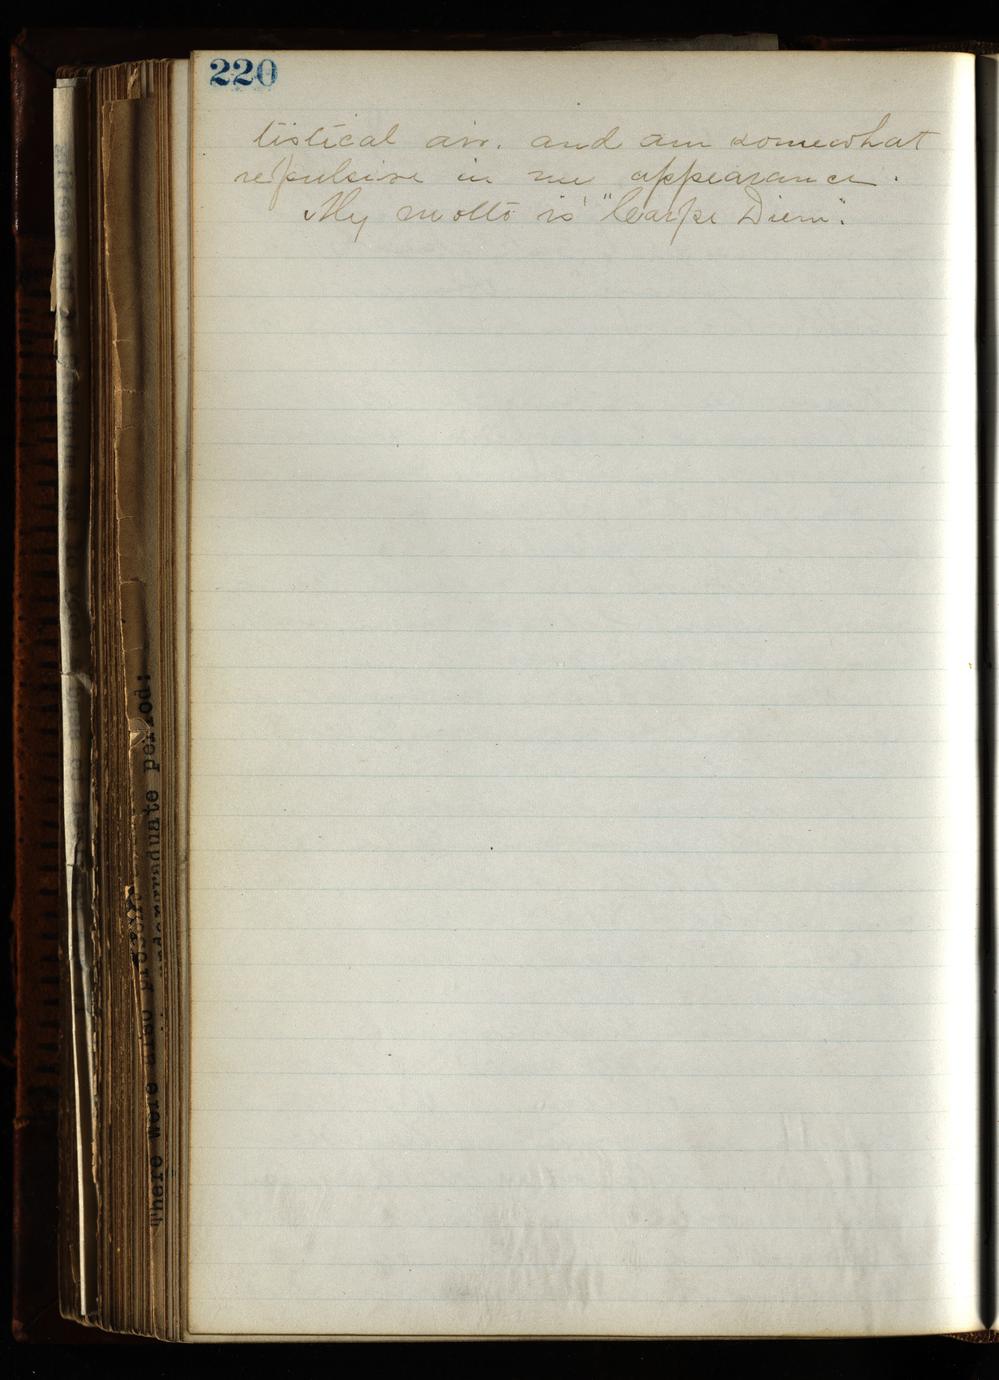 220
tistical air. and am somewhat
repulsive in my appearance.
My motto is "Carpe Diem".
There were also
undergraduate period: